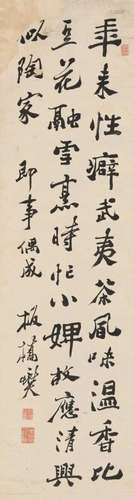 年来性癖武夷茶風味温香比
豆花融雪烹時忙小婢故應清興
似陶家 即事偶成 板橋燮